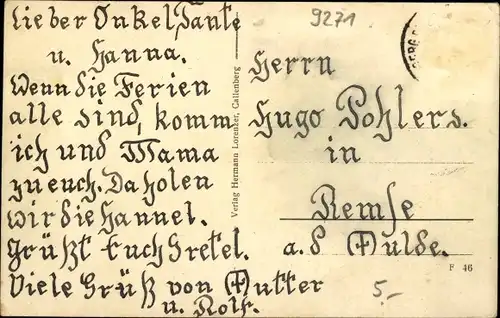 Lieber Onkel, Tante
u. Hanna.
Wenn die Ferien
alle sind, komm
ich und Mama
zu euch. Da holen
wir die Hannel.
Grüßt Euch Gretel.
Viele Grüß von Mutter
u. Rolf.
Verlag Hermann Lorenzer, Callenberg
9271
Herrn
Hugo Pohlers.
in
Remse
a. d Mulde.
F 46
5,-